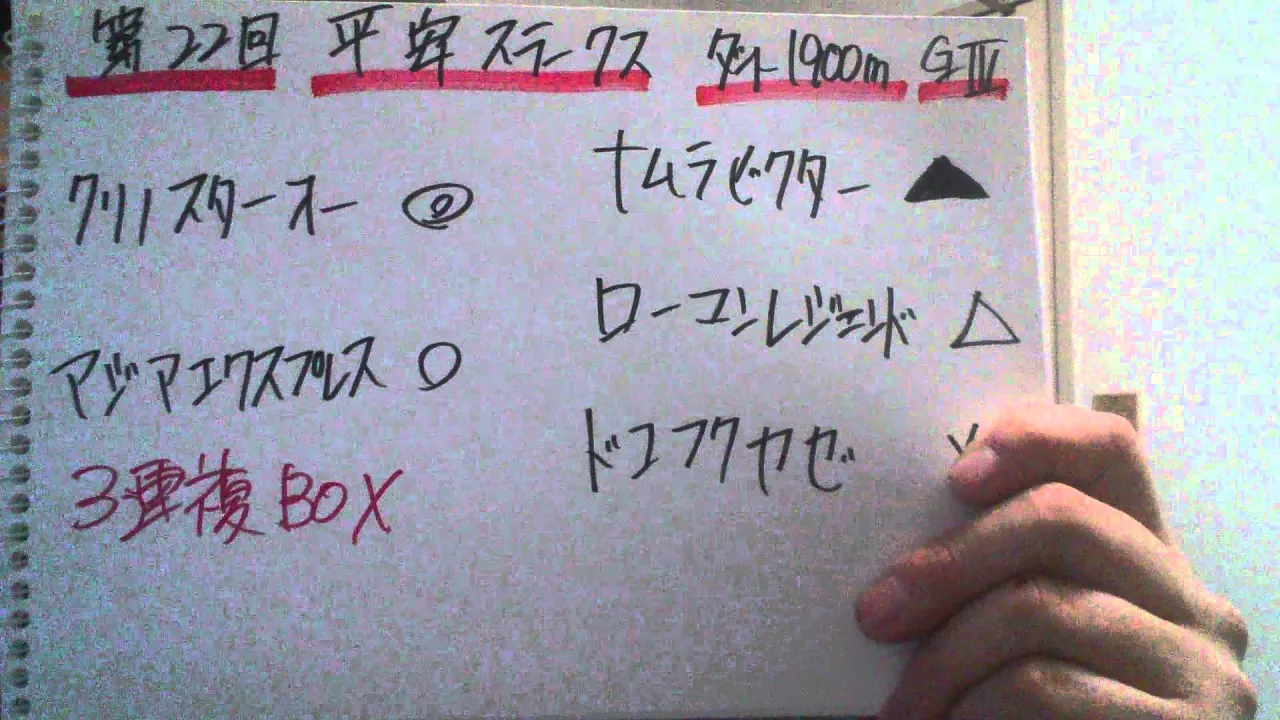 第22回 平安ステークス ダート1900m GⅢ
クリノスターオー ◎
アジアエクスプレス ○
3連複BOX
ナムラビクター ▲
ローマンレジェンド △
ドコフクカゼ ×